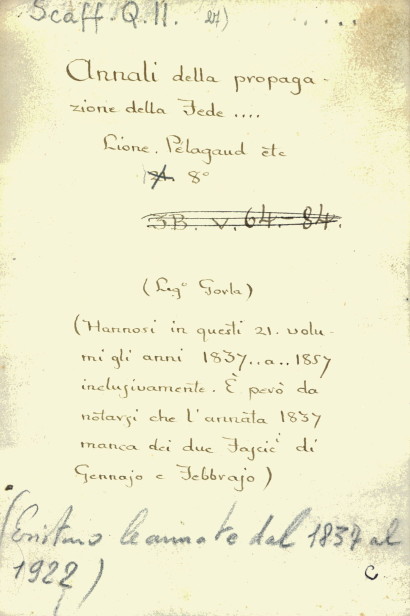 Scaff. Q. 11. 27)
Annali della propaga-
zione della Fede ....
Lione. Pélagaud ètc
8°
3B. V. 64.-84.
(Leg° Gorla)
(Hannosi in questi 21. volu-
mi gli anni 1837..a..1857
inclusivamente. È però da
notarsi che l'annata 1837
manca dei due Fascic̀ di
Gennajo e Febbrajo)
(Esistono le annate dal 1837 al
1922)
C